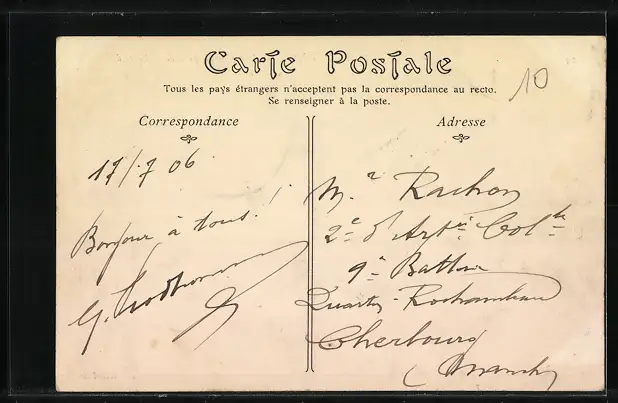 Carte Postale
10
Tous les pays étrangers n'acceptent pas la correspondance au recto.
Se renseigner à la poste.
Correspondance
17/7 06
Bonjour à tous!
G.
Adresse
Mr Rachon
2e d'Artie Colle
9e Batterie
Quartr Rochambeau
Cherbourg
(Manche)